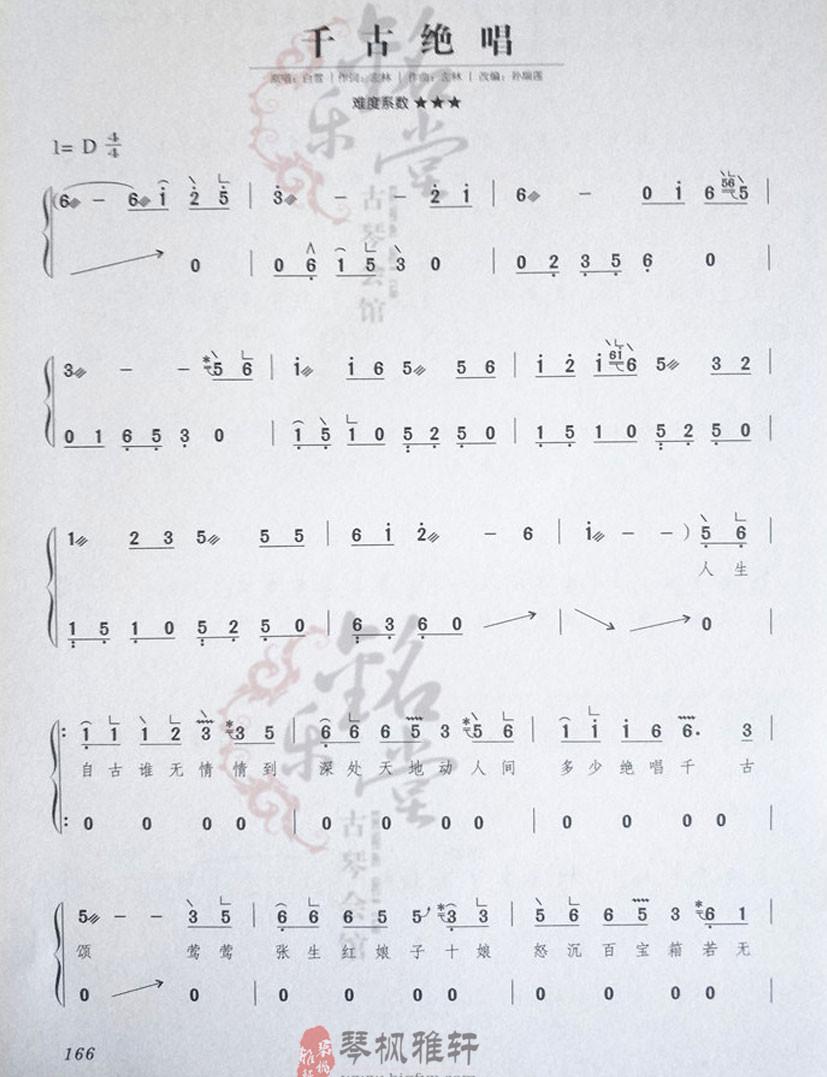 千古绝唱
原唱：白雪 | 作词：左林 | 作曲：左林 | 改编：孙瑞莲
难度系数 ★★★
1= D 4/4
铭乐堂
古琴会馆
6 – 6 i 2 5 | 3 – – 2 i | 6 – 0 i 6 56 5 |
0 | 0 6 1 5 3 0 | 0 2 3 5 6 0 |
3 – – 5 6 | i i 6 5 5 6 | i 2 i 6i 6 5 3 2 |
0 1 6 5 3 0 | 1 5 1 0 5 2 5 0 | 1 5 1 0 5 2 5 0 |
1 2 3 5 5 5 | 6 i 2 – 6 | i – – ) 5 6 |
人生
1 5 1 0 5 2 5 0 | 6 3 6 0 | 0 |
铭乐堂
古琴会馆
: 1 1 1 2 3 3 5 | 6 6 6 5 3 5 6 | 1 i i 6 6. 3 |
自古谁无情情到 深处天地动人间 多少绝唱千古
: 0 0 0 0 0 | 0 0 0 0 0 | 0 0 0 0 0 |
5 – – 3 5 | 6 6 6 5 5 3 3 | 5 6 6 5 3 6 1 |
颂 莺莺 张生红娘子十娘 怒沉百宝箱若无
0 0 | 0 0 0 0 | 0 0 0 0 0 |
166
琴枫雅轩